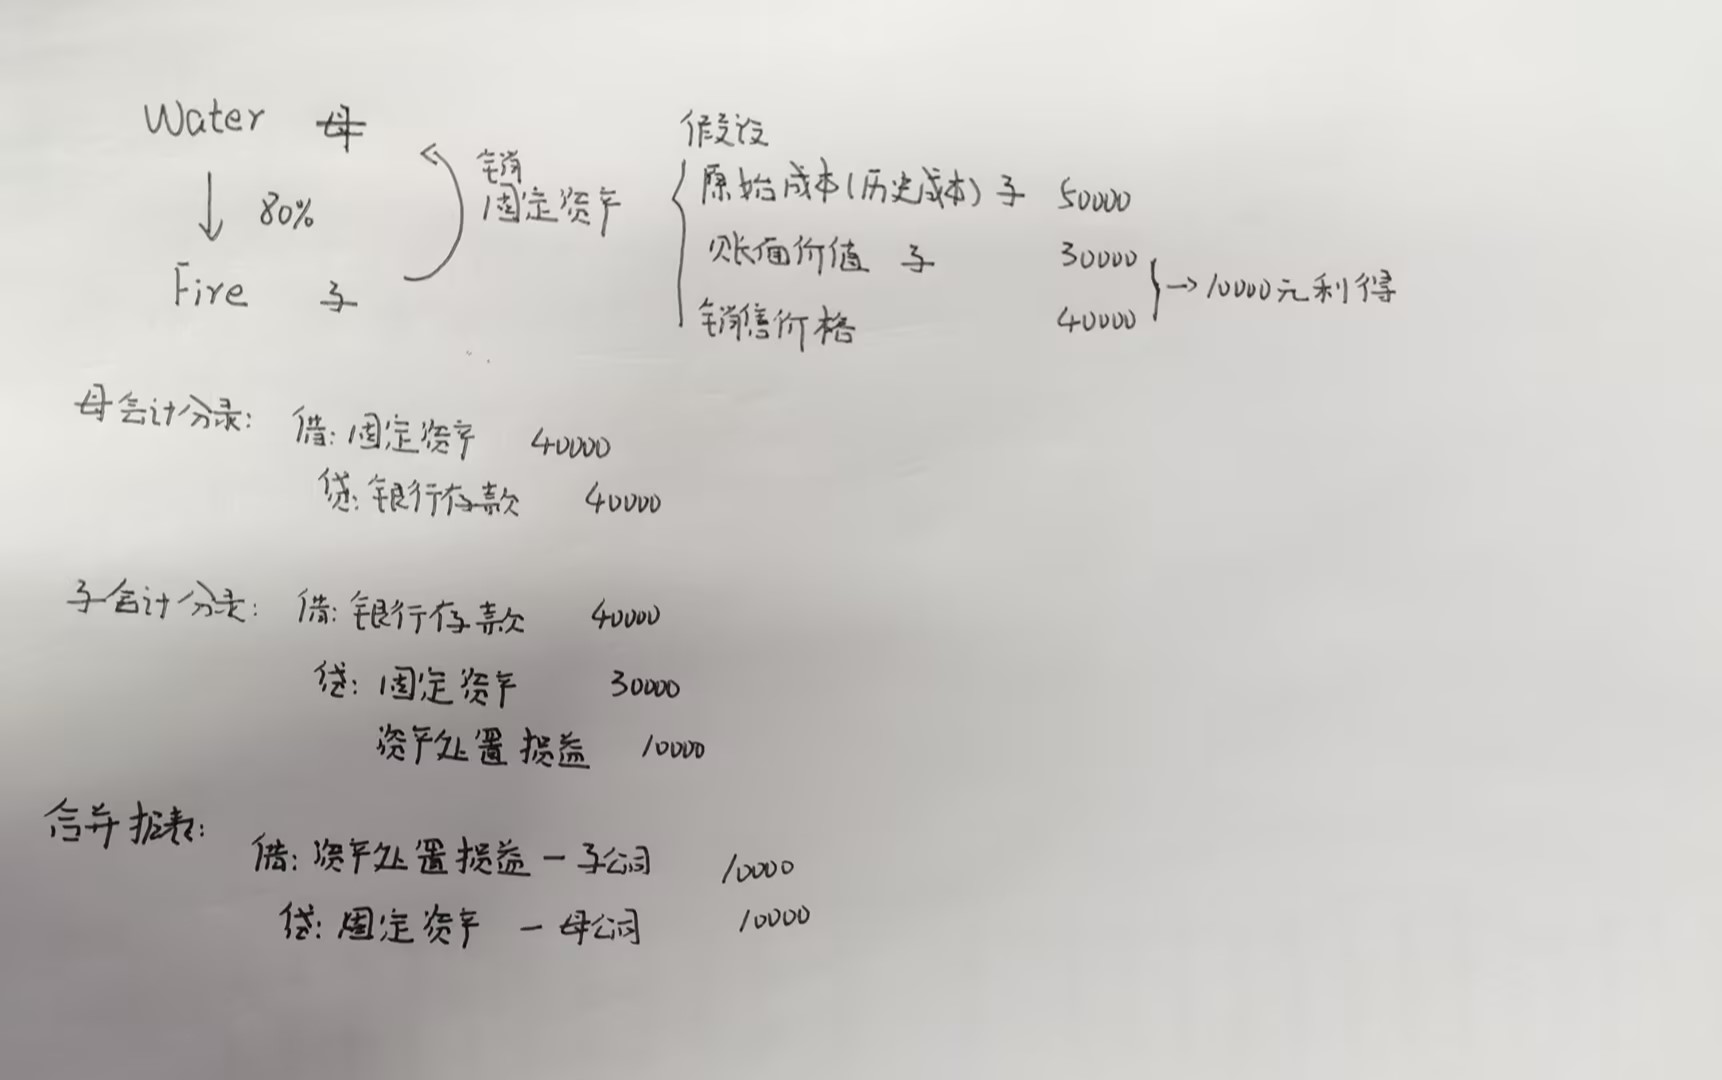 Water 母
80%
Fire 子
销
固定资产
假设
原始成本(历史成本) 子 50000
账面价值 子 30000
销售价格 40000
→10000元利得
母会计分录: 借: 固定资产 40000
贷: 银行存款 40000
子会计分录: 借: 银行存款 40000
贷: 固定资产 30000
资产处置损益 10000
合并报表:
借: 资产处置损益 - 子公司 10000
贷: 固定资产 - 母公司 10000